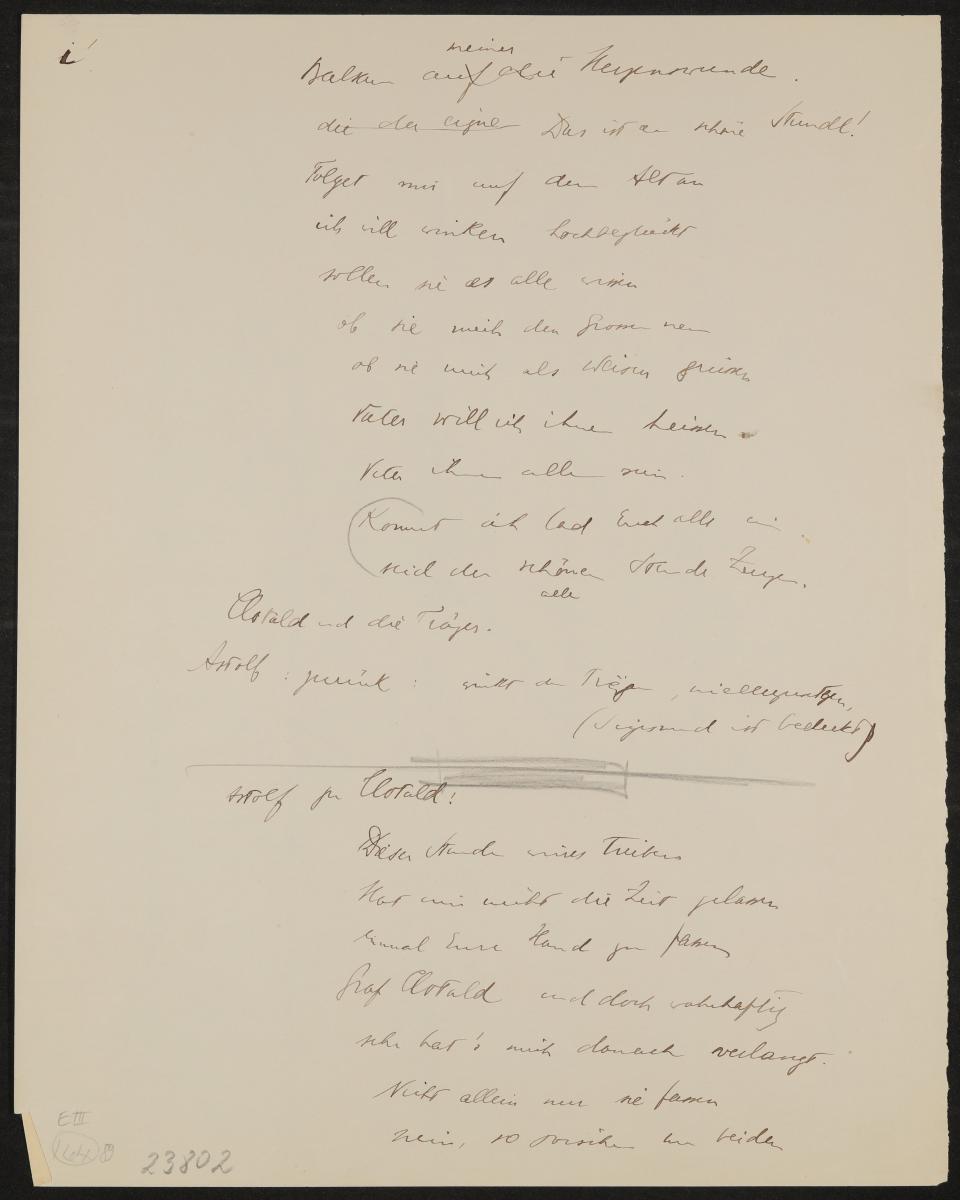 i
meiner
Balsam auf die Herzenswunde.
die der eigne Das ist eine schöne Stunde!
Folget mir auf den Altan
ich will winken hochbeglückt
sollen sie es alle wissen
ob sie mich den Grossen nennen
ob sie mich als Weisen grüssen
Vater will ich ihnen heissen.
Vater ihnen allen sein.
Kommt ich lad Euch alle ein
seid der schönen Stunde Zeugen.
alle
Clotald und die Träger.
Astolf: zurück: winkt den Trägern, niederzusetzen,
(Sigismund ist bedeckt)
Astolf zu Clotald:
Dieser Stunde wirres Treiben
Hat mir nicht die Zeit gelassen
einmal Eure Hand zu fassen
Graf Clotald und doch wahrhaftig
sehr hat's mich danach verlangt.
Nicht allein nur sie fassen
nein, so zwischen den beiden
E III
23802